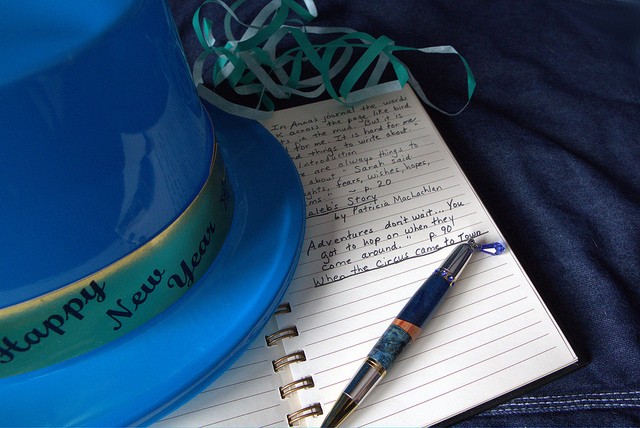 Happy New Year
In Anna's journal the words
across the page like bird
in the mud. But it is
for me. It is hard for me
things to write about."
Introduction
are always things to
about," Sarah said.
fears, wishes, hopes,
" ~ p. 20
aleb's Story
by Patricia MacLachlan
Adventures don't wait... You
got to hop on when they
come around." p. 90
When the Circus Came to Town